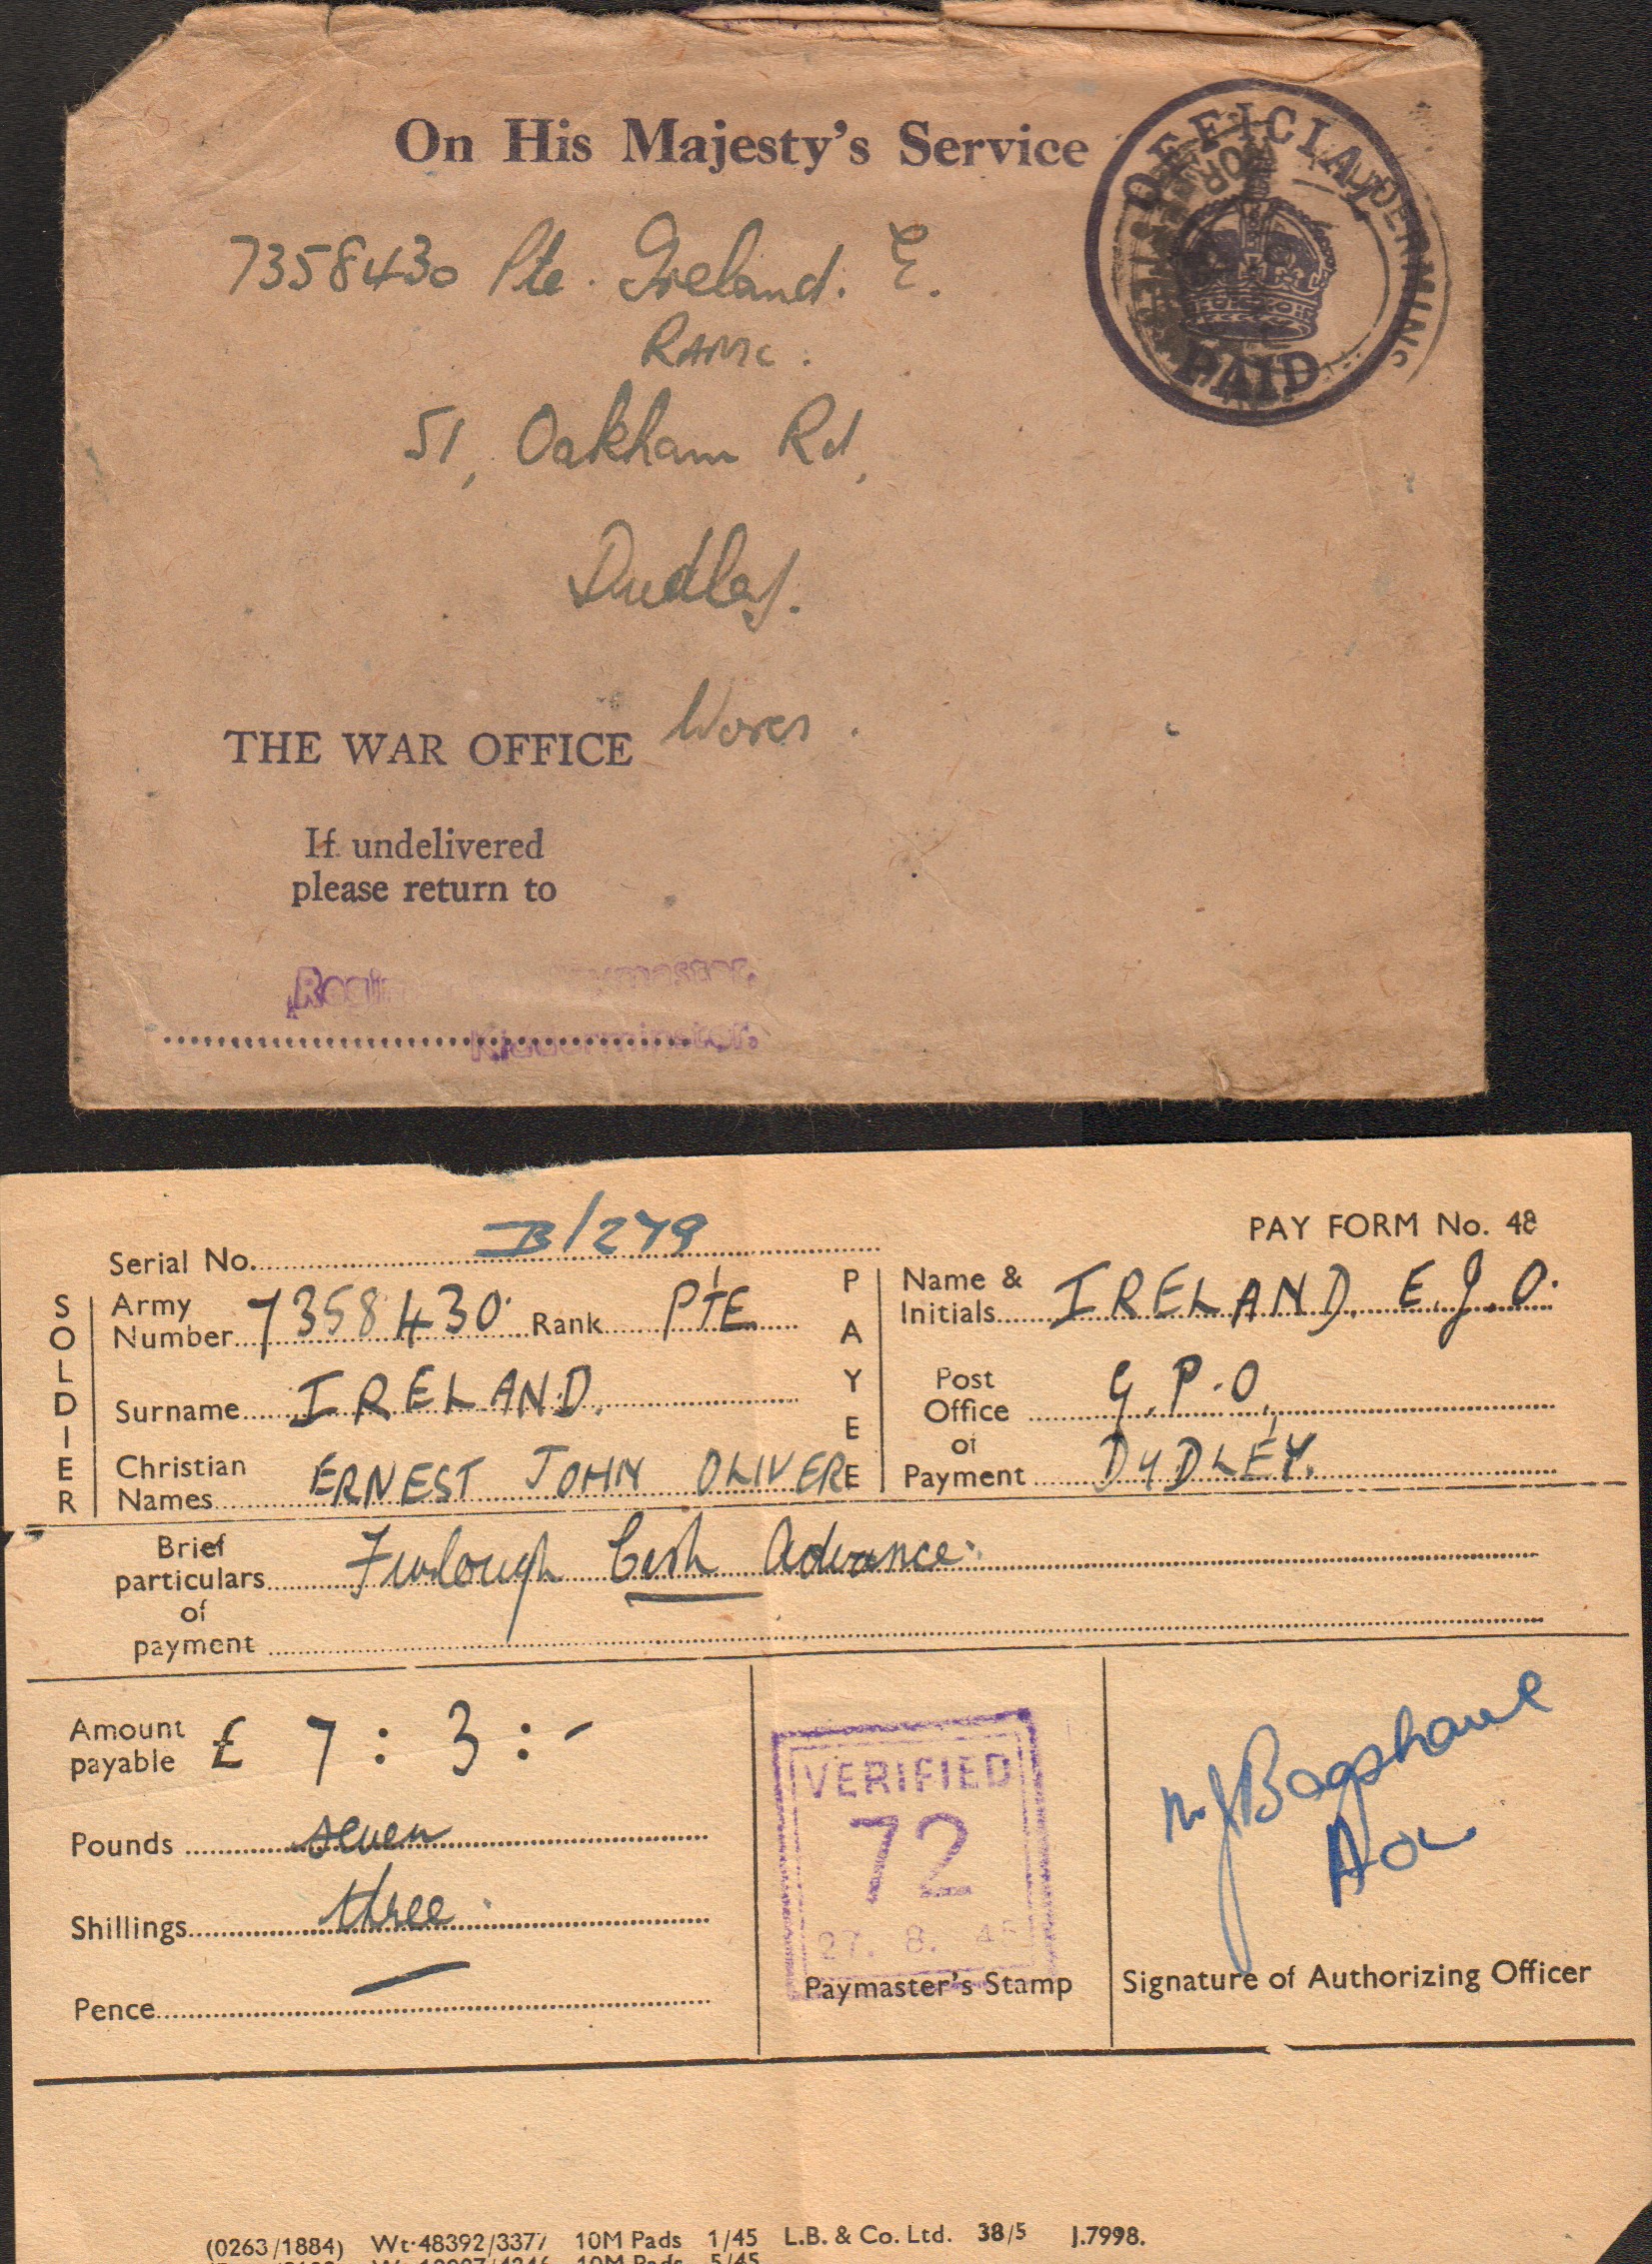 On His Majesty's Service
OFFICIAL
PAID
7358430 Pte. Ireland. E.
RAMC.
51, Oakham Rd,
Dudley.
Worcs.
THE WAR OFFICE
If undelivered
please return to
Kidderminster.
Serial No. B/279
PAY FORM No. 48
SOLDIER
Army Number 7358430 Rank PTE
Surname IRELAND.
Christian Names ERNEST JOHN OLIVER
PAYEE
Name & Initials IRELAND. E.J.O.
Post Office of Payment G.P.O. DUDLEY.
Brief particulars of payment Furlough Cash Advance.
Amount payable £ 7 : 3 : -
Pounds seven
Shillings three
Pence —
VERIFIED
72
27. 8. 45
Paymaster's Stamp
Bagshawe
Signature of Authorizing Officer
(0263/1884) Wt. 48392/3377 10M Pads 1/45 L.B. & Co. Ltd. 38/5 J.7998.
10M Pads 5/45